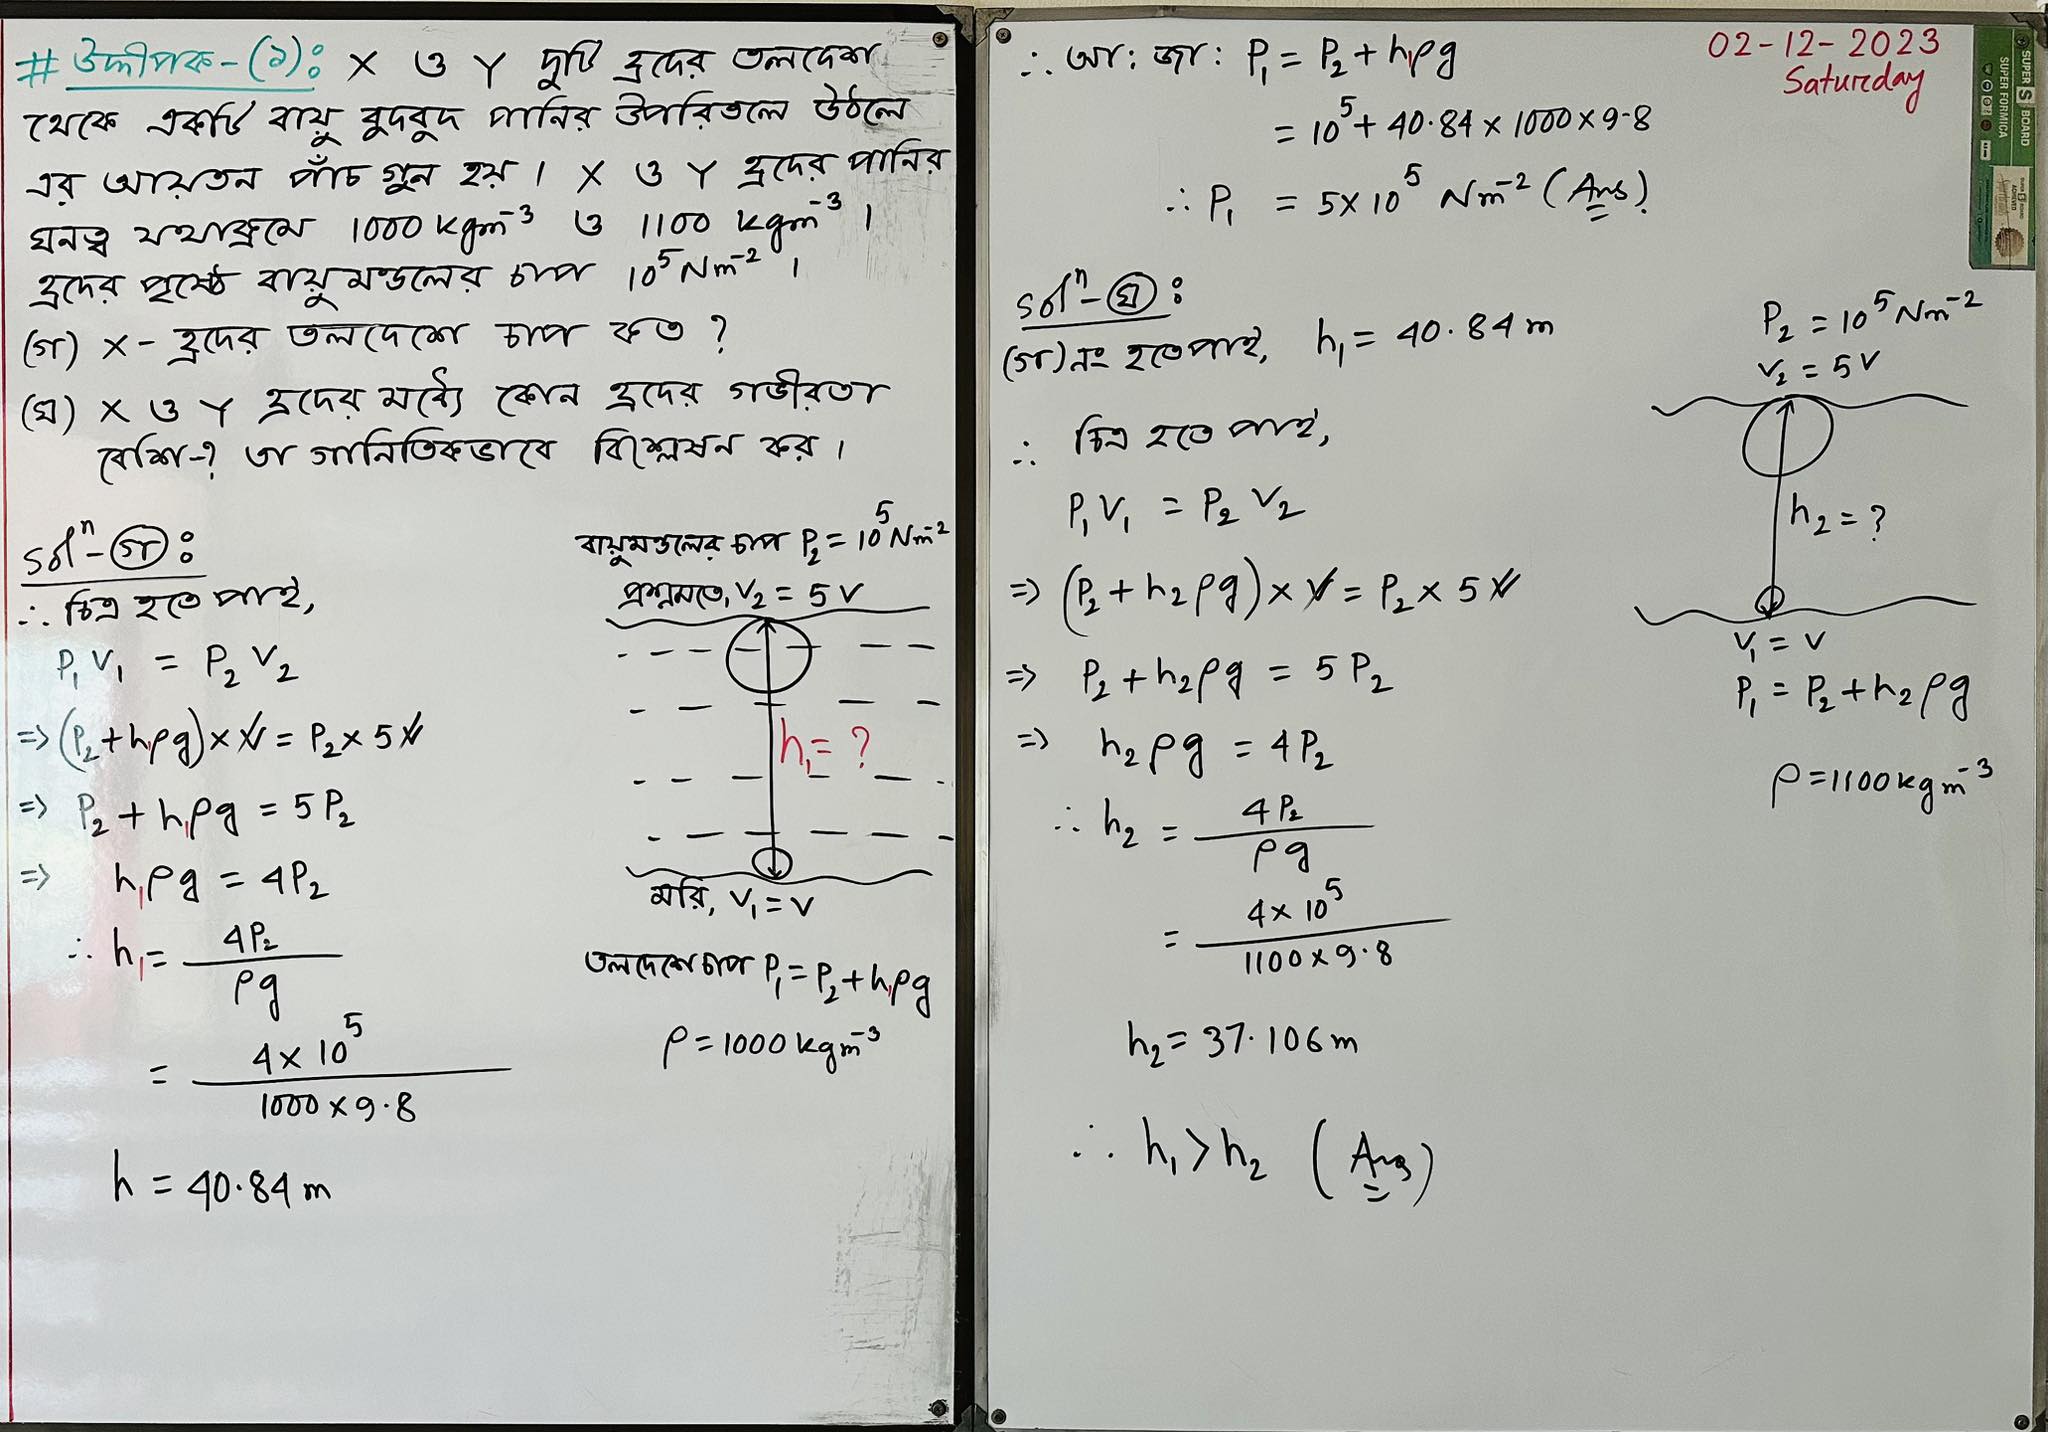 # উদ্দীপক-(১): X ও Y দুটি হ্রদের তলদেশ
থেকে একটি বায়ু বুদবুদ পানির উপরিতলে উঠলে
এর আয়তন পাঁচ গুন হয়। X ও Y হ্রদের পানির
ঘনত্ব যথাক্রমে 1000 kgm⁻³ ও 1100 kgm⁻³।
হ্রদের পৃষ্ঠে বায়ুমণ্ডলের চাপ 10⁵ Nm⁻²।
(গ) X- হ্রদের তলদেশে চাপ কত?
(ঘ) X ও Y হ্রদের মধ্যে কোন হ্রদের গভীরতা
বেশি-? তা গানিতিকভাবে বিশ্লেষন কর।
solⁿ-(গ):
∴ চিত্র হতে পাই,
P₁V₁ = P₂V₂
=> (P₂+h₁ρg)×V = P₂×5V
=> P₂+h₁ρg = 5P₂
=> h₁ρg = 4P₂
∴ h₁ = 4P₂
ρg
= 4×10⁵
1000×9.8
h = 40.84 m
বায়ুমণ্ডলের চাপ P₂ = 10⁵ Nm⁻²
প্রশ্নমতে, V₂ = 5V
h₁ = ?
মরি, V₁ = V
তলদেশে চাপ P₁ = P₂+h₁ρg
ρ = 1000 kgm⁻³
∴ আ: জা: P₁ = P₂+h₁ρg
= 10⁵+40.84×1000×9.8
∴ P₁ = 5×10⁵ Nm⁻² (Ans).
02-12-2023
Saturday
SUPER S BOARD
SUPER FORMICA
solⁿ-(ঘ):
(গ) নং হতে পাই, h₁ = 40.84 m
∴ চিত্র হতে পাই,
P₁V₁ = P₂V₂
=> (P₂+h₂ρg)×V = P₂×5V
=> P₂+h₂ρg = 5P₂
=> h₂ρg = 4P₂
∴ h₂ = 4P₂
ρg
= 4×10⁵
1100×9.8
h₂ = 37.106 m
∴ h₁>h₂ (Ans)
P₂ = 10⁵ Nm⁻²
V₂ = 5V
h₂ = ?
V₁ = V
P₁ = P₂+h₂ρg
ρ = 1100 kgm⁻³